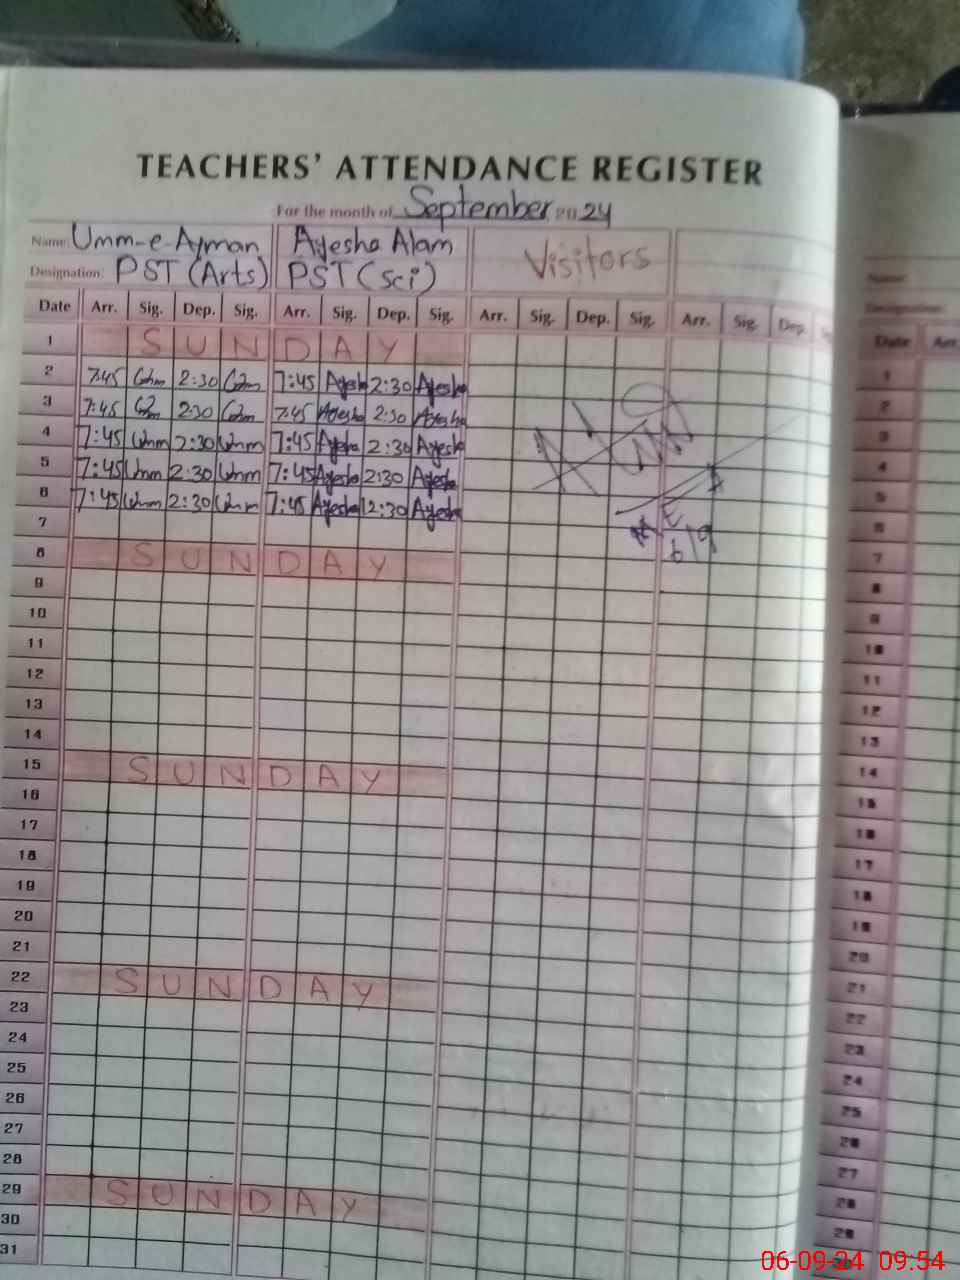 TEACHERS' ATTENDANCE REGISTER
For the month of September 2024
Name: Umm-e-Ayman Ayesha Alam Visitors
Designation: PST (Arts) PST (Sci)
Date Arr. Sig. Dep. Sig. Arr. Sig. Dep. Sig. Arr. Sig. Dep. Sig. Arr. Sig. Dep.
1 SUNDAY
2 7:45 Umm 2:30 Umm 7:45 Ayesha 2:30 Ayesha
3 7:45 Umm 2:30 Umm 7:45 Ayesha 2:30 Ayesha
4 7:45 Umm 2:30 Umm 7:45 Ayesha 2:30 Ayesha
5 7:45 Umm 2:30 Umm 7:45 Ayesha 2:30 Ayesha
6 7:45 Umm 2:30 Umm 7:45 Ayesha 2:30 Ayesha
6/9
7
8 SUNDAY
9
10
11
12
13
14
15 SUNDAY
16
17
18
19
20
21
22 SUNDAY
23
24
25
26
27
28
29 SUNDAY
30
31
Name:
Designation:
Date Arr.
1
2
3
4
5
6
7
8
9
10
11
12
13
14
15
16
17
18
19
20
21
22
23
24
25
26
27
28
29
06-09-24 09:54